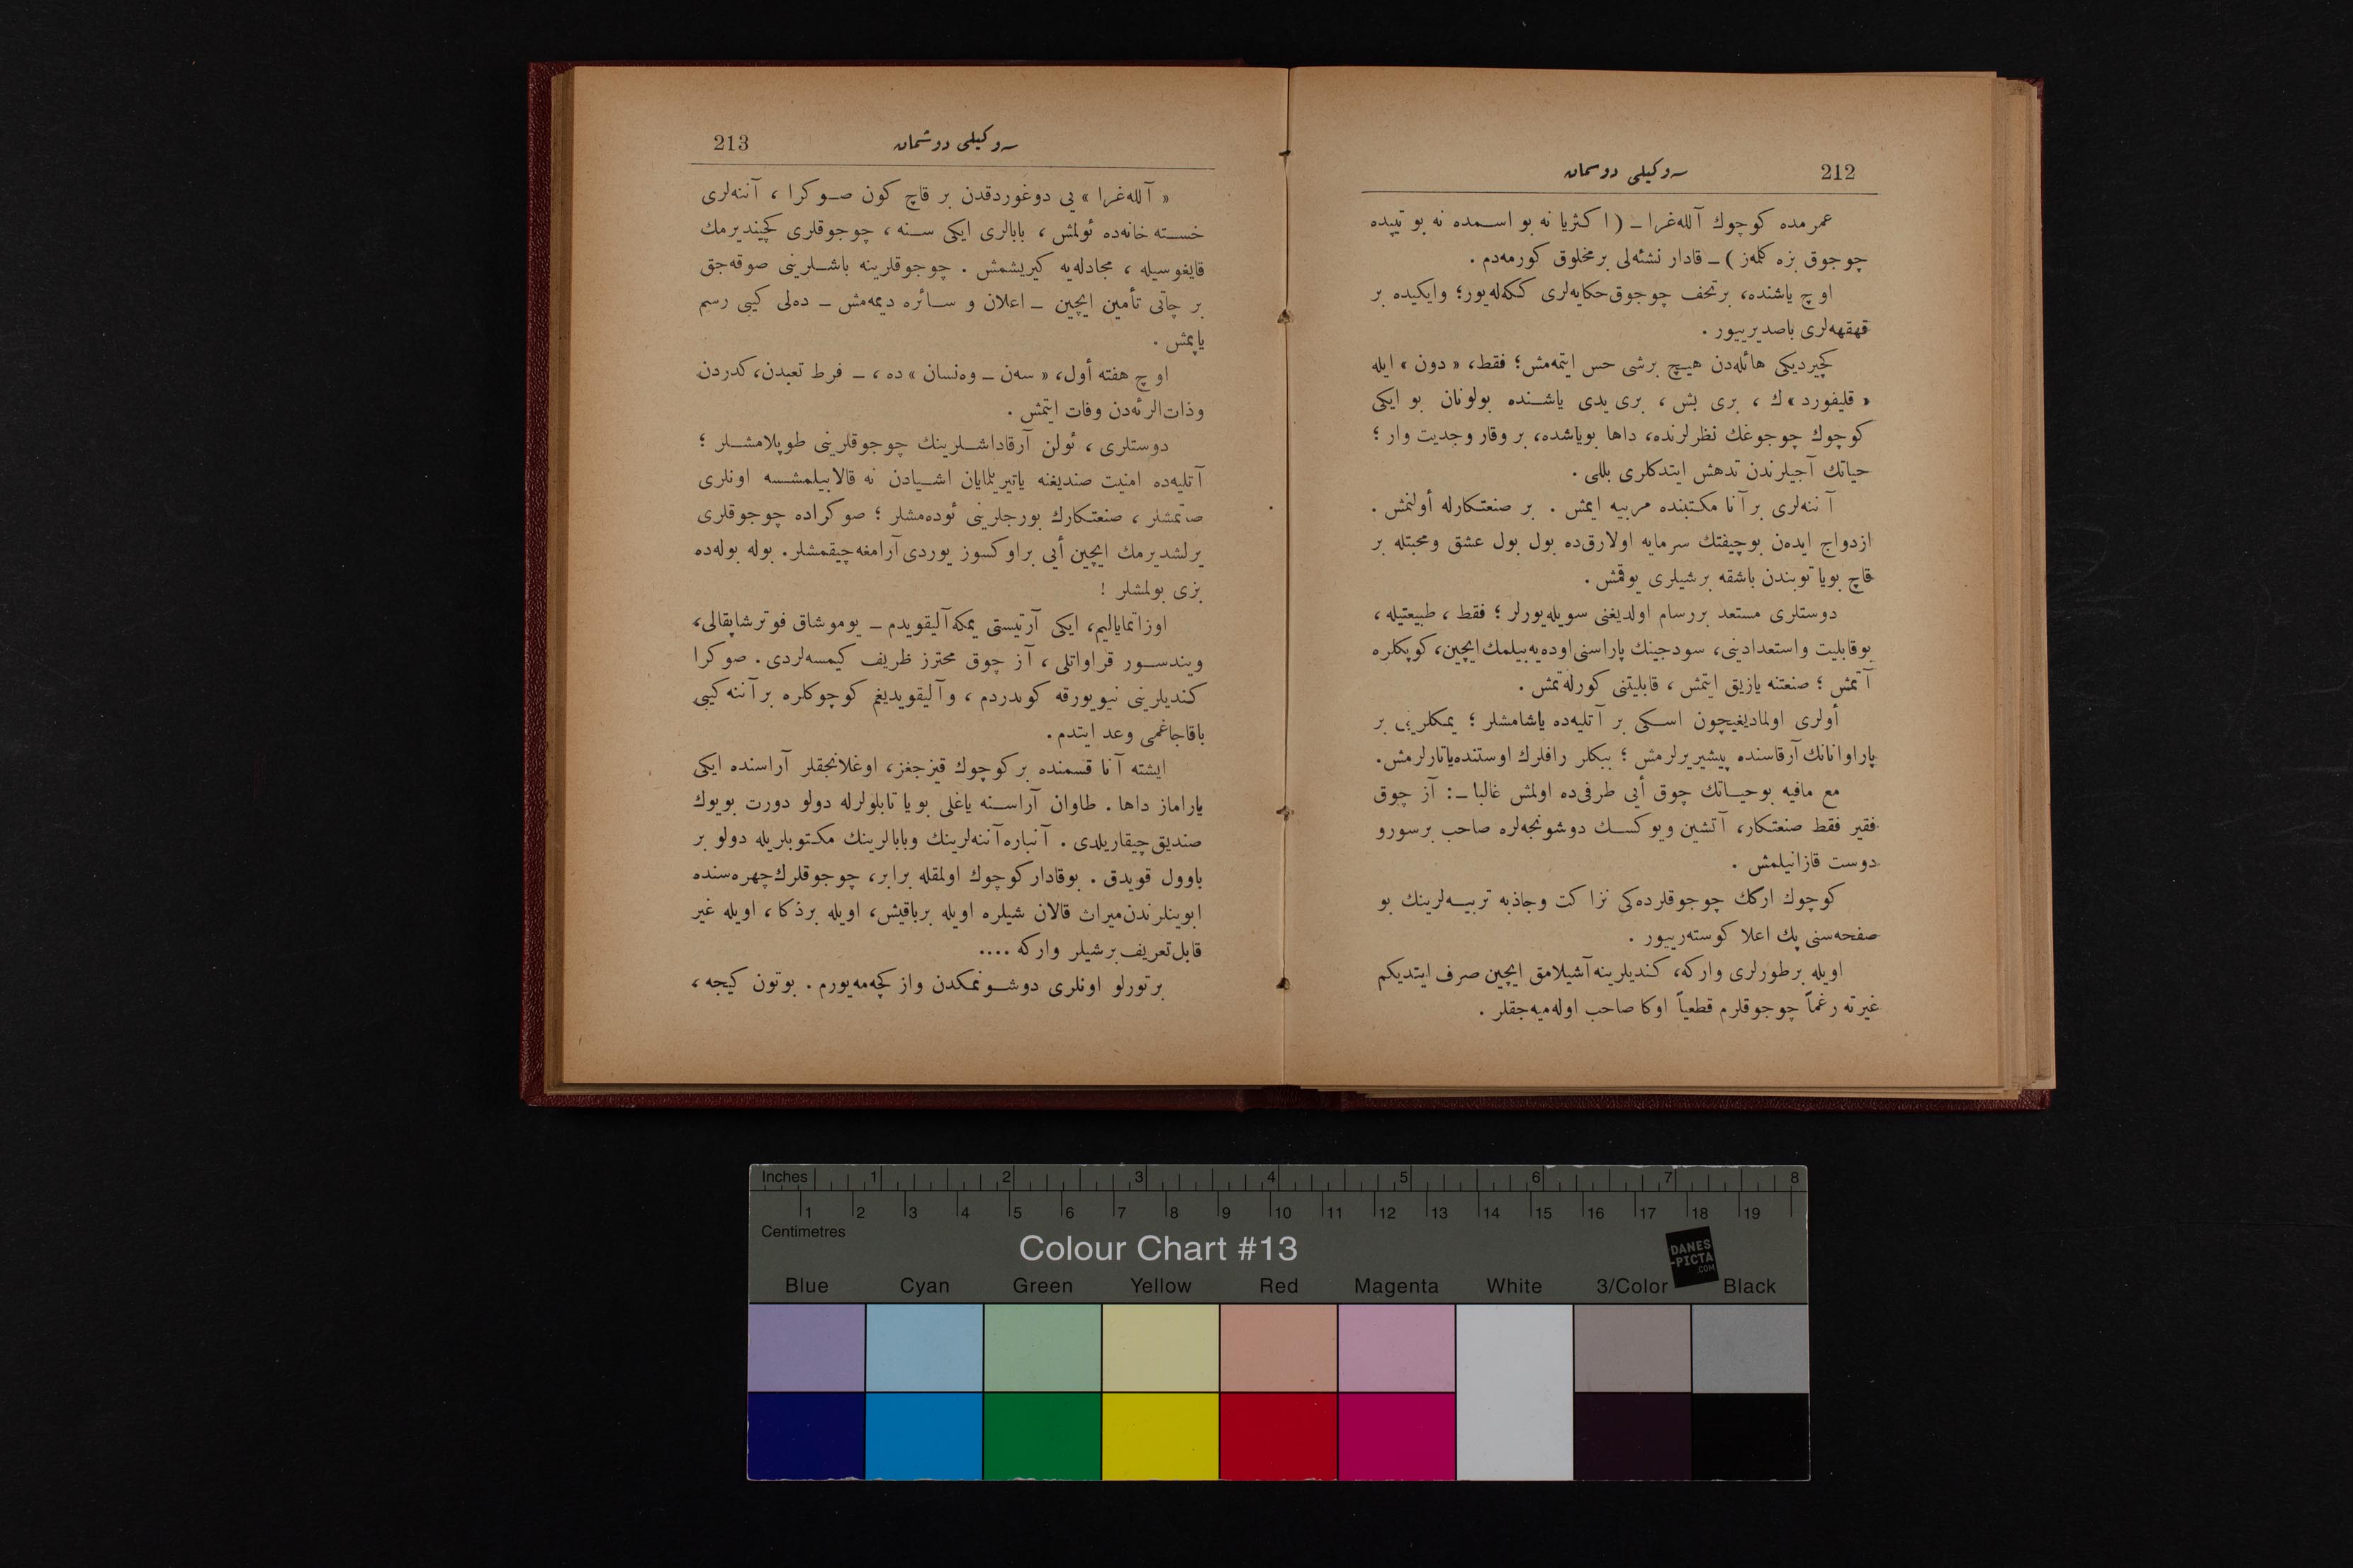 212
سوكيلی دوشمان
عمرمده كوچوك آلله‌غرا ـ ( اكثريا نه بو اسمده نه بو تيپده
چوجوق بزه كلمه‌ز ) ـ قادار نشئه‌لی برمخلوق كورمه‌دم .
اوچ ياشنده، برتحف چوجوق‌حكايه‌لری ككه‌له‌يور؛ وايكيده بر
قهقهه‌لری باصديرييور .
كچيرديكی هائله‌دن هيچ برشی حس ايتمه‌مش؛ فقط، « دون » ايله
« قليفورد »ك ، بری بش ، بری يدی ياشنده بولونان بو ايكی
كوچوك چوجوغك نظرلرنده، داها بوياشده، بر وقار وجديت وار ؛
حياتك آجيلرندن تدهش ايتدكلری بللی .
آننه‌لری برآنا مكتبنده مربيه ايمش . بر صنعتكارله أولنمش .
ازدواج ايده‌ن بوچيفتك سرمايه اولارق‌ده بول بول عشق ومحبتله بر
قاچ بويا توبندن باشقه برشيلری يوقمش .
دوستلری مستعد بررسام اولديغنی سويله‌يورلر ؛ فقط ، طبيعتيله ،
بوقابليت واستعدادينی، سودجينك پاراسنی‌اوده‌يه‌بيلمك‌ايچين، كوپكلره
آتمش ؛ صنعتنه يازيق ايتمش ، قابليتنی كورله‌تمش .
أولری اولماديغيچون اسكی بر آتليه‌ده ياشامشلر ؛ يمكلرينی بر
پاراوانانك آرقاسنده پيشيريرلرمش ؛ ببكلر رافلرك اوستنده‌ياتارلرمش.
مع مافيه بوحياتك چوق أيی طرفی‌ده اولمش غالبا ـ: آز چوق
فقير فقط صنعتكار، آتشين ويوكسك دوشونجه‌لره صاحب برسورو
دوست قازانيلمش .
كوچوك اركك چوجوقلرده‌كی نزاكت وجاذبه تربيه‌لرينك بو
صفحه‌سنی پك اعلا كوسته‌رييور .
اويله برطورلری واركه، كنديلرينه‌آشيلامق ايچين صرف ايتديكم
غيرته رغماً چوجوقلرم قطعياً اوكا صاحب اوله‌ميه‌جقلر .
سوكيلی دوشمان
213
« آلله‌غرا » يی دوغوردقدن بر قاچ كون صوكرا ، آننه‌لری
خسته‌خانه‌ده ئولمش ، بابالری ايكی سنه ، چوجوقلری كچينديرمك
قايغوسيله ، مجادله‌يه كيريشمش . چوجوقلرينه باشلرينی صوقه‌جق
بر چاتی تأمين ايچين ـ اعلان و سائره ديمه‌مش ـ ده‌لی كيبی رسم
ياپمش .
اوچ هفته أول، « سه‌ن ـ وه‌نسان » ده ، ـ فرط تعبدن، كدردن
وذات‌الرئه‌دن وفات ايتمش .
دوستلری ، ئولن آرقاداشلرينك چوجوقلرينی طوپلامشلر ؛
آتليه‌ده امنيت صنديغنه ياتيريلمايان اشيادن نه قالابيلمشسه اونلری
صاتمشلر ، صنعتكارك بورجلرينی ئوده‌مشلر ؛ صوكراده چوجوقلری
يرلشديرمك ايچين أيی براوكسوز يوردی آرامغه‌چيقمشلر. بوله بوله‌ده
بزی بولمشلر !
اوزاتماياليم، ايكی آرتيستی يمكه‌آليقويدم ـ يوموشاق فوترشاپقالی،
ويندسور قراواتلی ، آز چوق محترز ظريف كيمسه‌لردی. صوكرا
كنديلرينی نيويورقه كوندردم ، وآليقويديغم كوچوكلره برآننه كيبی
باقاجاغمی وعد ايتدم .
ايشته آنا قسمنده بركوچوك قيزجغز، اوغلانجقلر آراسنده ايكی
ياراماز داها . طاوان آراسنه ياغلی بويا تابلولرله دولو دورت بويوك
صنديق چيقاريلدی . آنباره‌آننه‌لرينك وبابالرينك مكتوبلريله دولو بر
باوول قويدق . بوقادار كوچوك اولمقله برابر، چوجوقلرك‌چهره‌سنده
ابوينلرندن‌ميراث قالان شيلره اويله برباقيش، اويله برذكا ، اويله غير
قابل‌تعريف برشيلر واركه ....
برتورلو اونلری دوشونمكدن واز كچه‌مه‌يورم . بوتون كيجه ،
Inches 1 2 3 4 5 6 7 8
1 2 3 4 5 6 7 8 9 10 11 12 13 14 15 16 17 18 19
Centimetres
Colour Chart #13
DANES
-PICTA
.COM
Blue Cyan Green Yellow Red Magenta White 3/Color Black